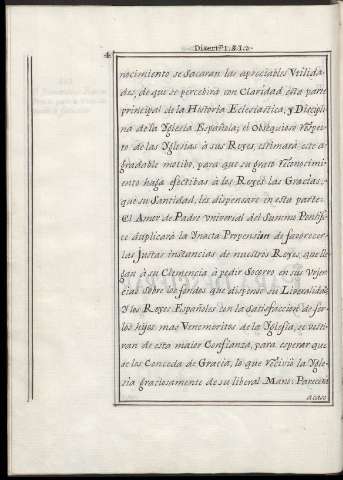 Disert.ⁿ 1. §. 1. 2.
4
nocimiento se Sacaran las apreciables Vtilida-
des, de que se percebirà con Claridad esta parte
principal de la Historia Eclesiastica, y Discipli-
na de la Yglesia Española; el Obsequioso Respe-
to de las Yglesias à sus Reyes, estimarà este a-
gradable motibo, para que su grato Reconocimi-
ento haga efectibas à los Reyes las Gracias,
que su Santidad, les dispensare in esta parte:
El Amor de Padre vniversal del Summo Pontifi-
ce duplicarà la Ynata Propension de favorecer
las Justas instancias de nuestros Reyes, que lle-
gan à su Clemencia à pedir Socorro, en sus Vrjen-
cias sobre los fondos que dispensò su Liberalidad;
Y los Reyes Españoles con la Satisfaccion de ser
los hijos mas Venemeritos de la Yglesia, se vesti-
ran de esta maior Confianza, para esperar que
se les Conceda de Gracia, lo que Recivió la Ygle-
sia graciosamente de su liberal Mano: Parecerà
acaso